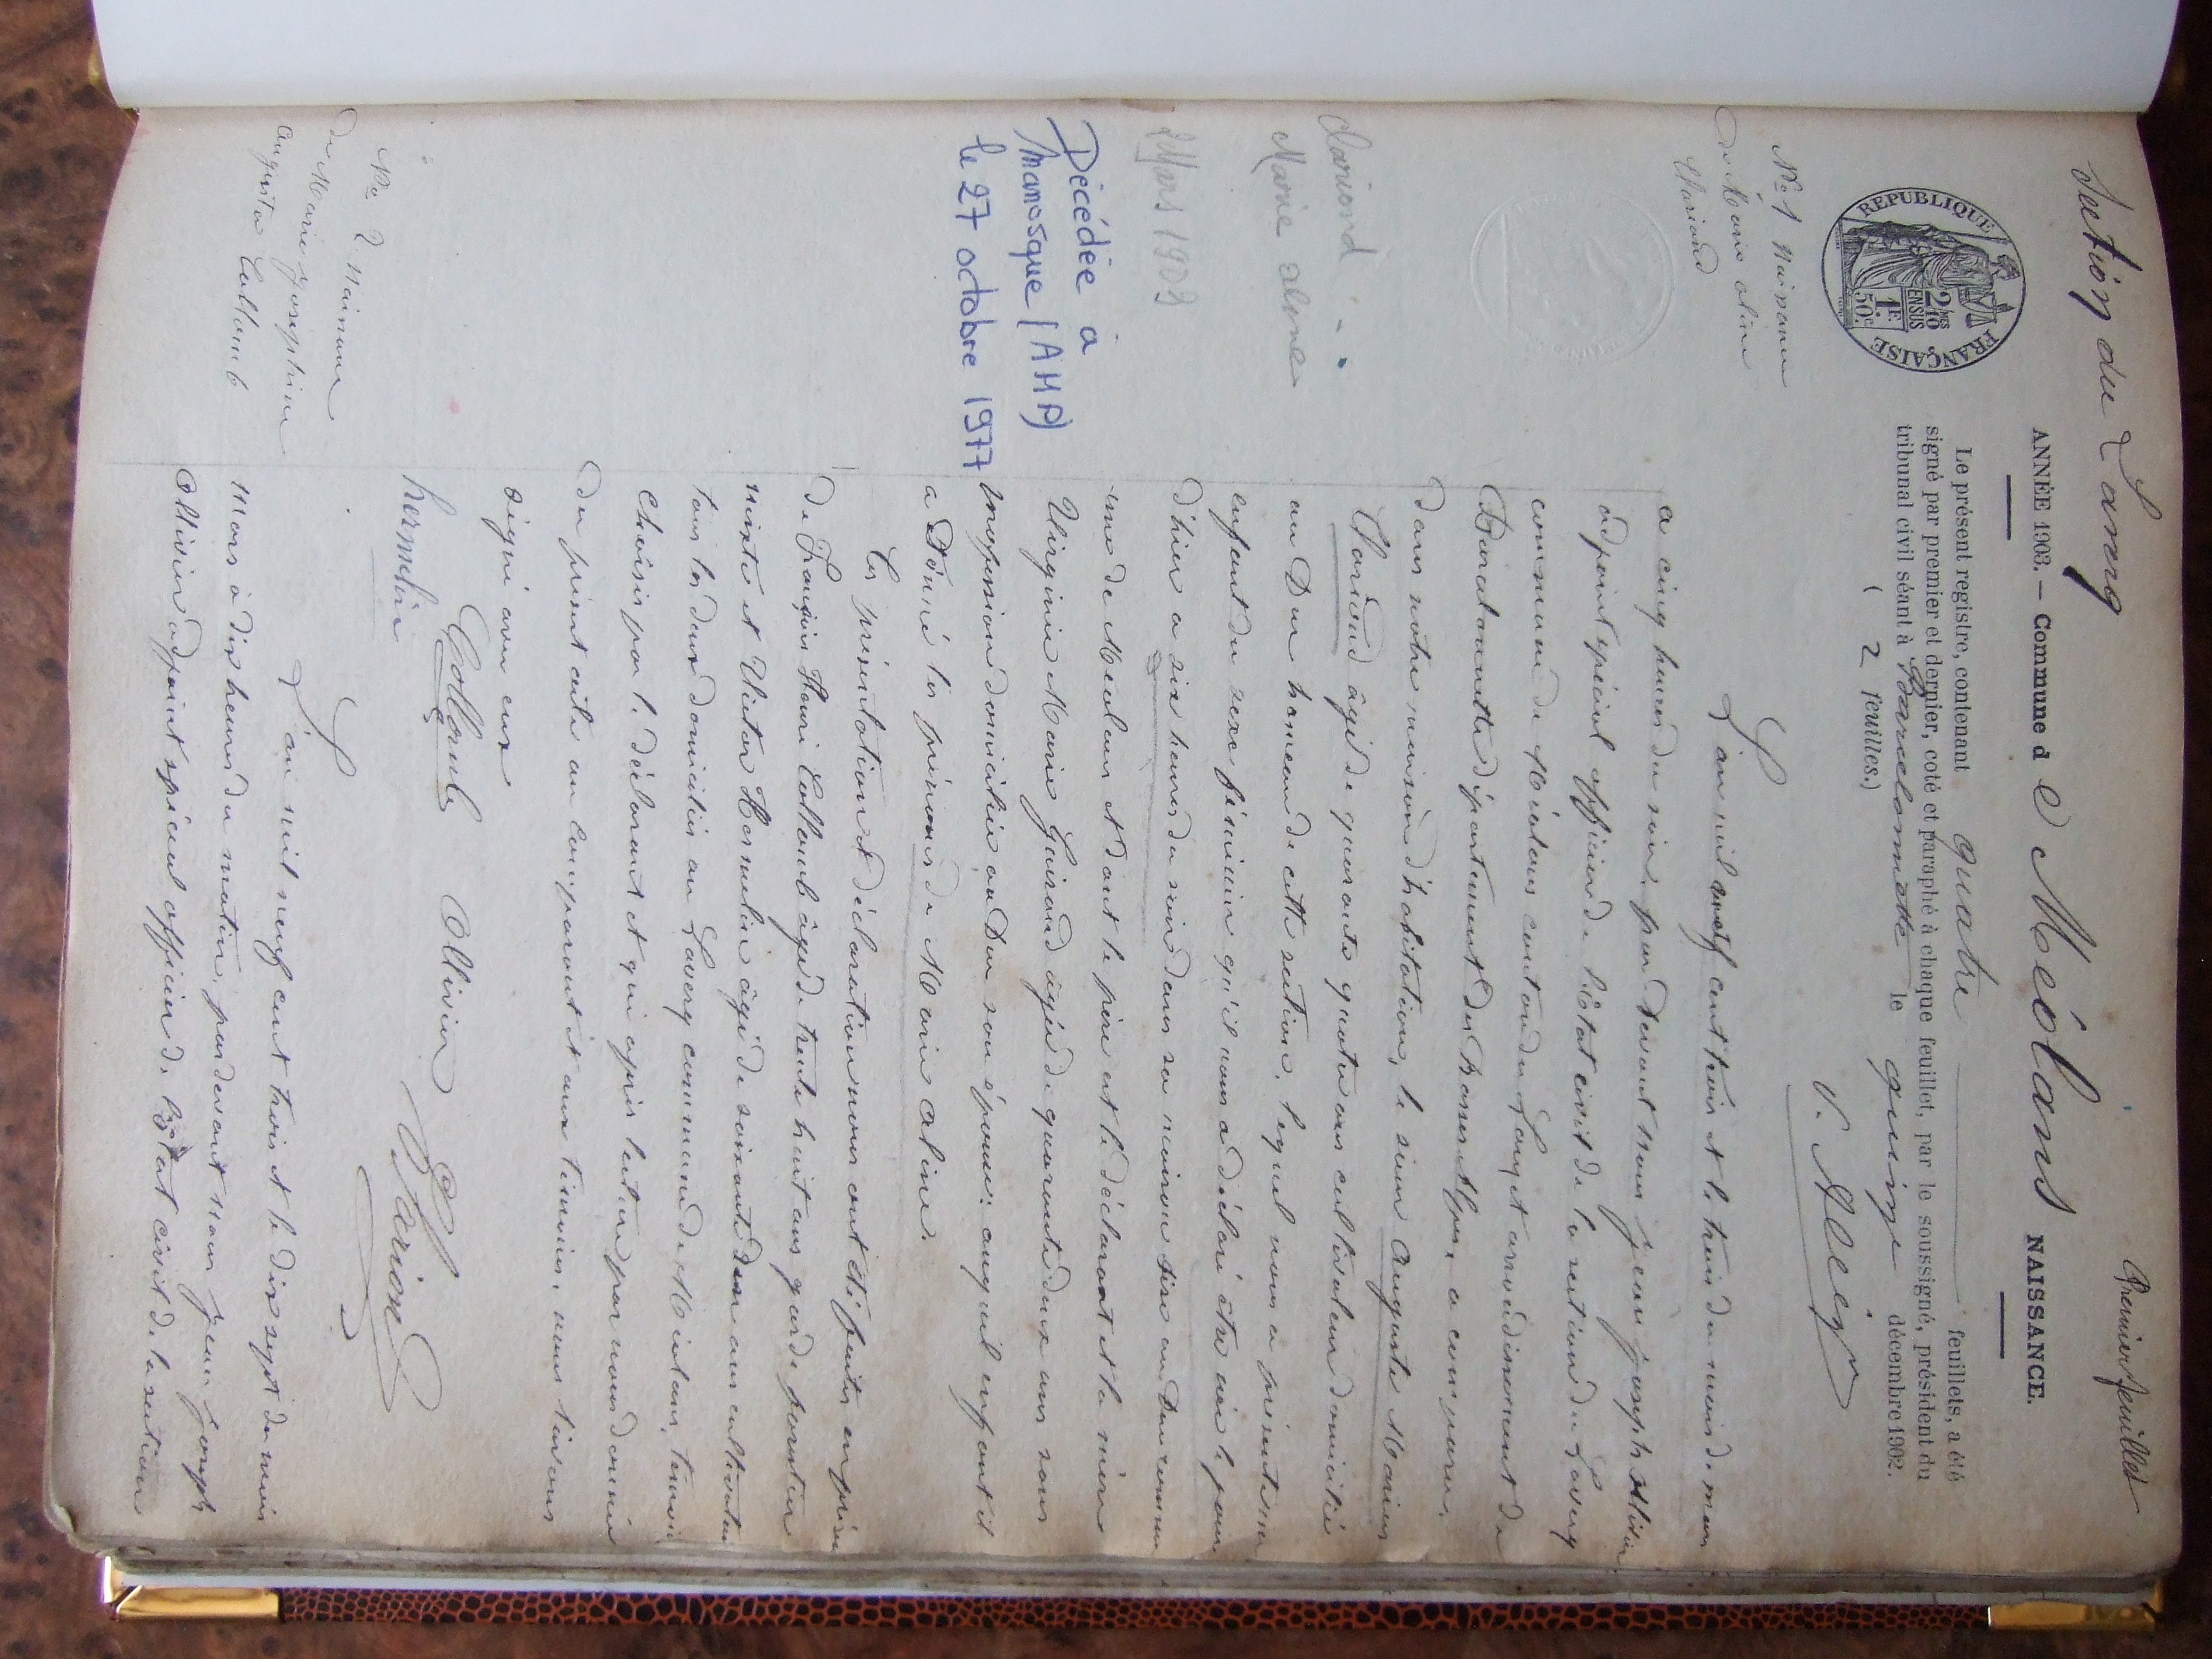 Section du Laverq
Premier feuillet
ANNÉE 1903. — Commune d e Méolans NAISSANCE.
Le présent registre, contenant quatre feuillets, a été
signé par premier et dernier, coté et paraphé à chaque feuillet, par le soussigné, président du
tribunal civil séant à Barcelonnette le quinze décembre 1902.
( 2 feuilles.)
RÉPUBLIQUE FRANÇAISE
2/10mes
EN SUS
1F.
50c.
No 1 Naissance
de Marie Aline
Clariond
Clariond
Marie Aline
2 Mars 1903
Décédée à
Manosque (AHP)
le 27 octobre 1977
L'an mil neuf cent trois et le trois du mois de mars
a cinq heures du soir, par devant nous jean joseph Ollivier
adjoint spécial officier de l'état civil de la section du Laverq
commune de Méolans canton du Lauzet arrondissement de
Barcelonnette département des Basses Alpes, a comparu,
dans notre maison d'habitation, le sieur Auguste Marius
Clariond âgé de quarante quatre ans cultivateur domicilié
au hameau de cette section, lequel nous a présenté un
enfant du sexe féminin qu'il nous a déclaré être née le jour
d'hier a six heures du soir dans sa maison sise au commu
une de Meolans et dont le père est le déclarant et la mère
Virginie Marie âgée de quarante deux ans sans
profession domiciliée au son épouse: auquel enfant il
a donné les prénoms de Marie Aline.
Les présentation et déclaration nous ont été faites en présence
de François Henri Collomb âgé de trente huit ans garde forestier
mixte et Victor Hermelin âgé de soixante deux ans cultivateur
tous les deux domiciliés au Laverq commune de Méolans, témoins
choisis par le déclarant et qui après lecture par nous donnée
du présent acte au comparant et aux témoins, nous l'avons
signé avec eux
Collomb Ollivier Clariond
hermelin
No 2 Naissance
de Marie Joséphine
Augusta Collomb
L'an mil neuf cent trois et le dix sept du mois
Mars à dix heures du matin, par devant nous jean joseph
Ollivier adjoint spécial officier de l'état civil de la section